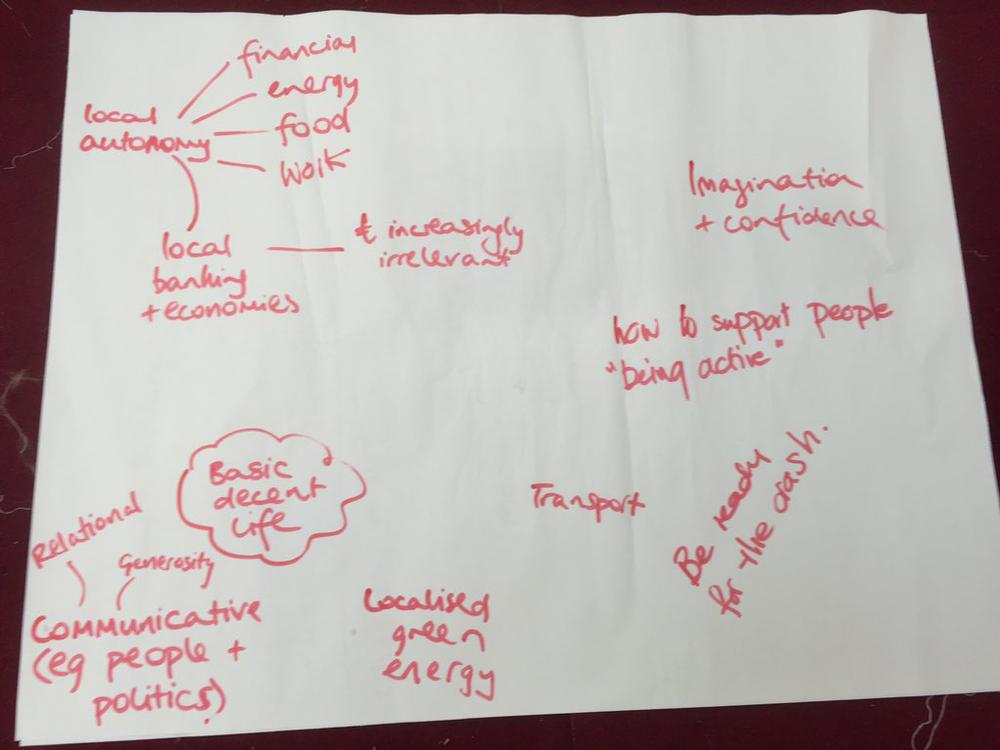 financial
energy
food
work
local
autonomy
local
banking
+ economies
£ increasingly
irrelevant
Imagination
+ confidence
how to support people
"being active"
Basic
decent
life
Relational
Generosity
Communicative
(eg people +
politics)
Localised
green
energy
Transport
Be ready
for the crash.